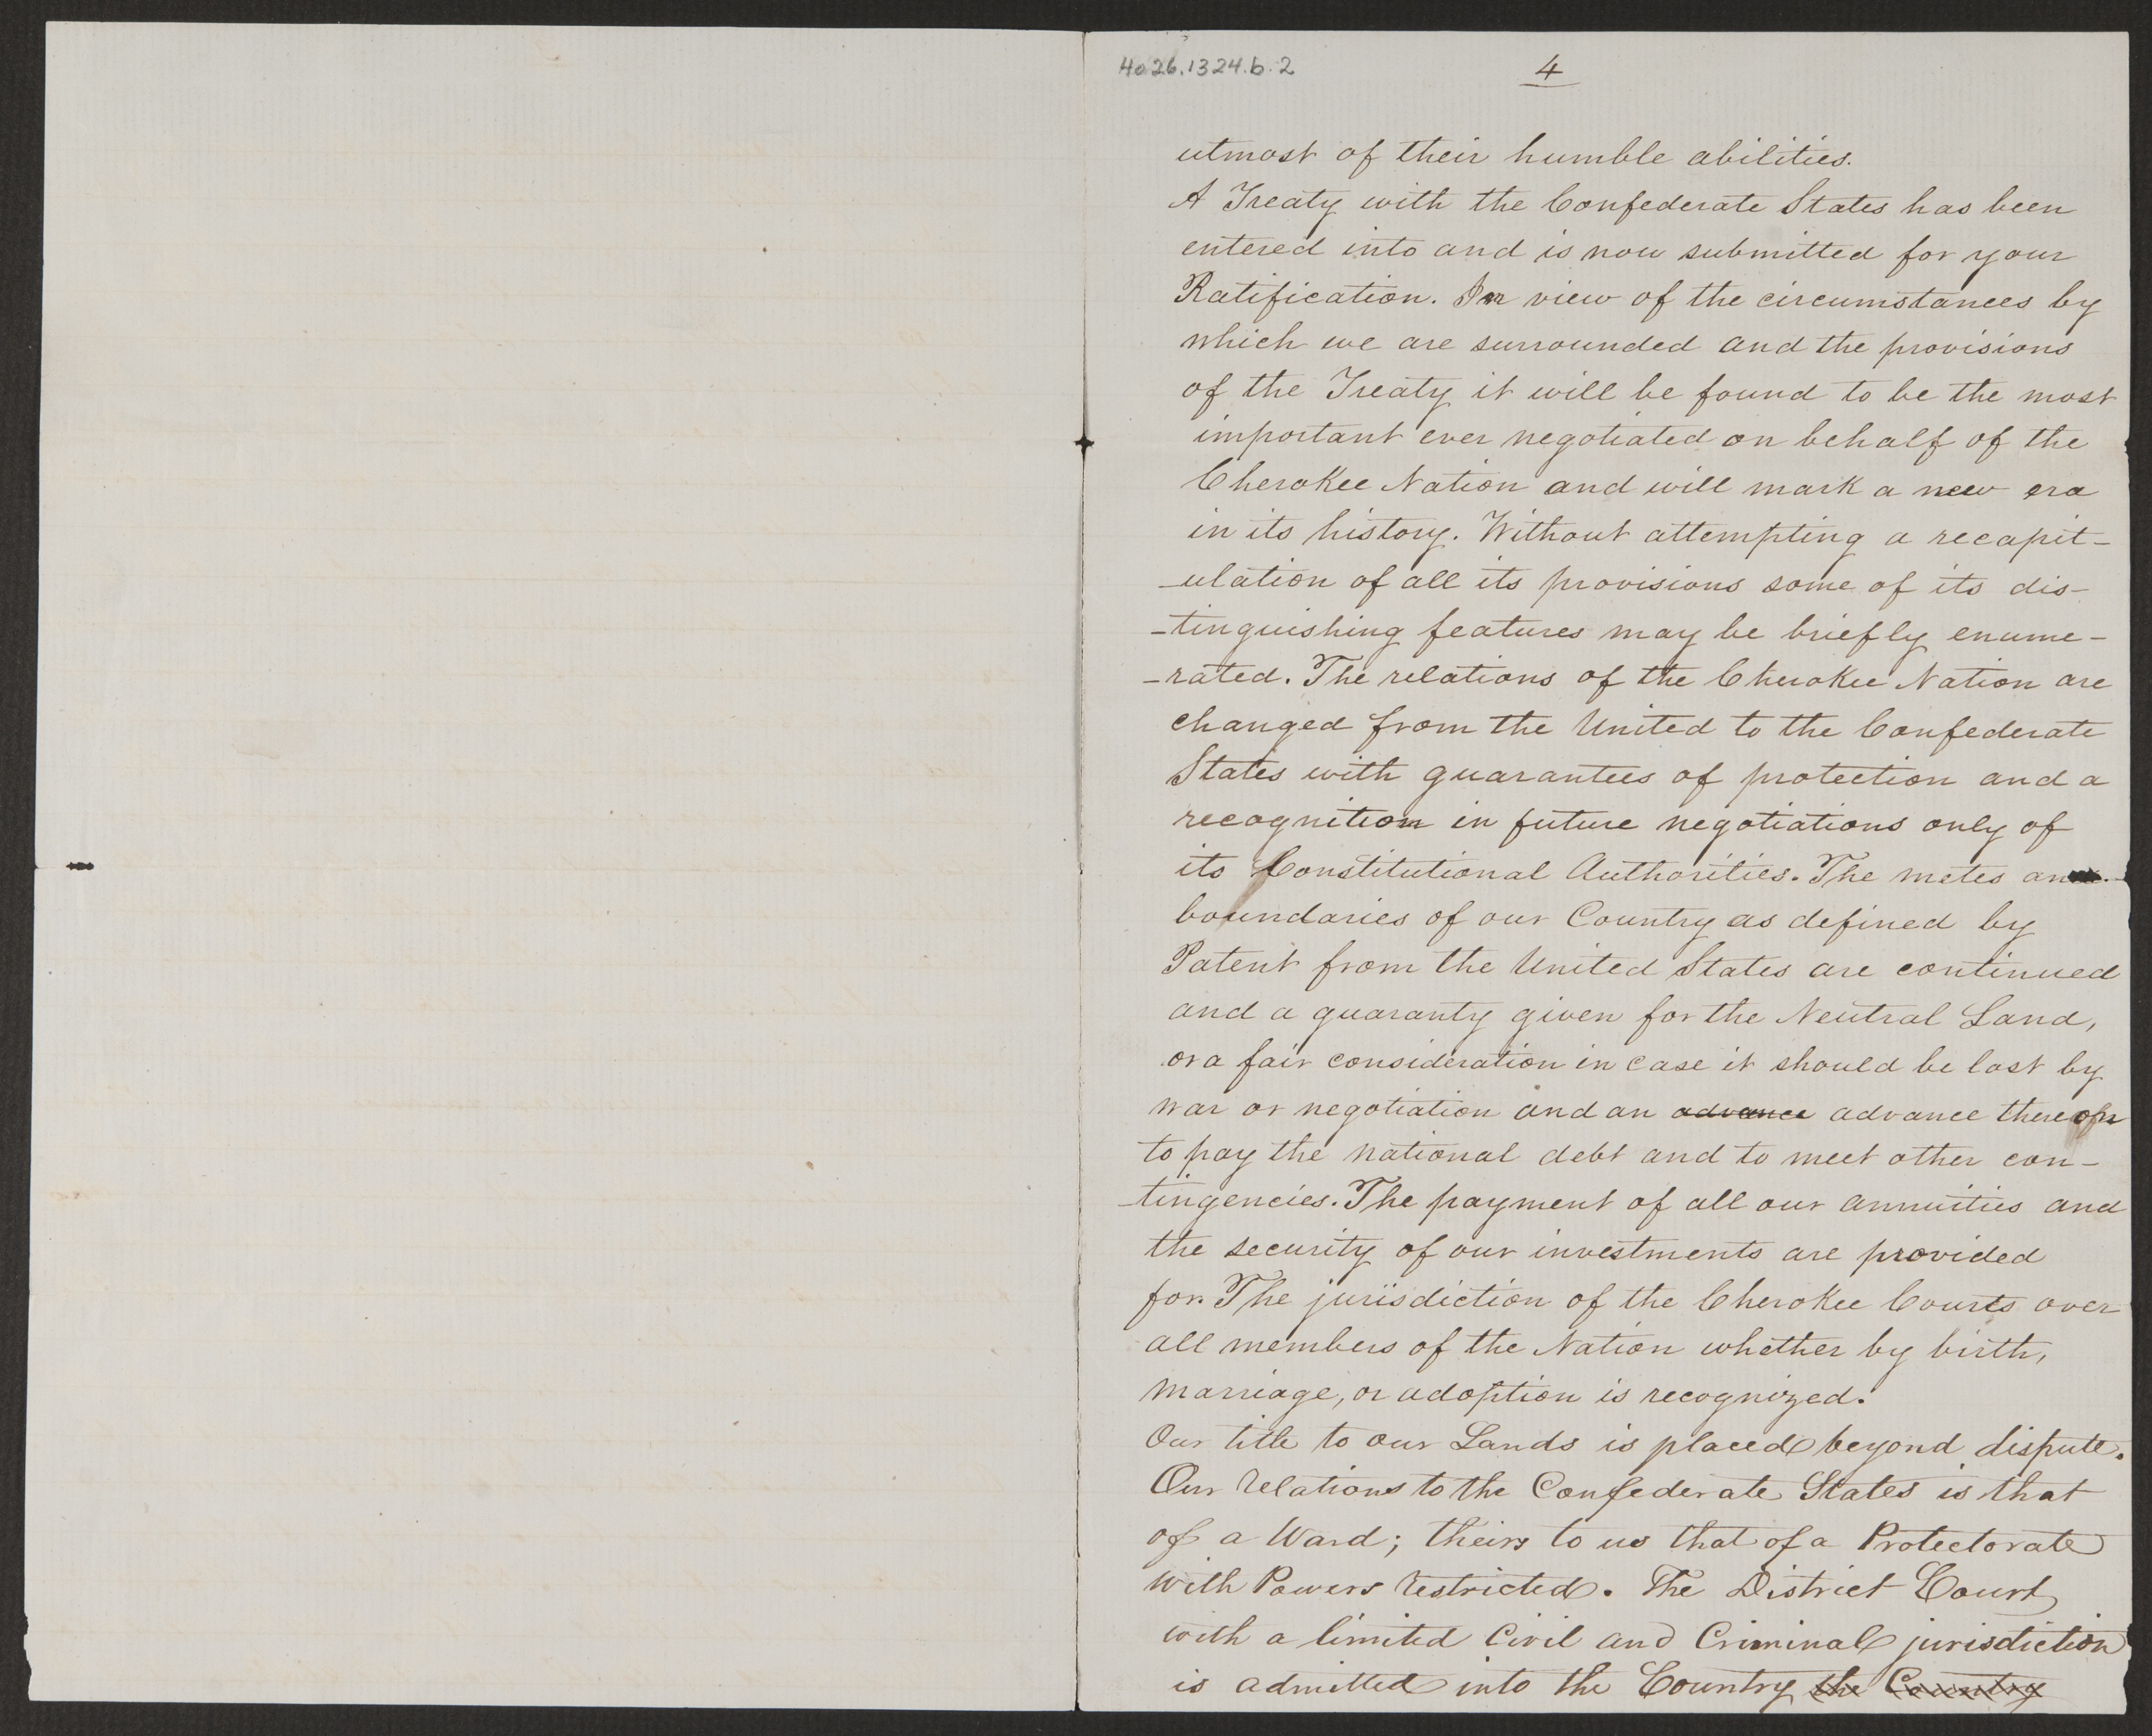 4026.1324.b.2
4
utmost of their humble abilities.
A Treaty with the Confederate States has been
entered into and is now submitted for your
Ratification. In view of the circumstances by
which we are surrounded and the provisions
of the Treaty it will be found to be the most
important ever negotiated on behalf of the
Cherokee Nation and will mark a new era
in its history. Without attempting a recapit-
-ulation of all its provisions some of its dis-
-tinguishing features may be briefly enume-
-rated. The relations of the Cherokee Nation are
changed from the United to the Confederate
States with guarantees of protection and a
recognition in future negotiations only of
its Constitutional Authorities. The metes and
boundaries of our Country as defined by
Patent from the United States are continued
and a guaranty given for the Neutral Land,
or a fair consideration in case it should be lost by
war or negotiation and an advance advance thereon
to pay the national debt and to meet other con-
-tingencies. The payment of all our annuities and
the security of our investments are provided
for. The jurisdiction of the Cherokee Courts over
all members of the Nation whether by birth,
marriage, or adoption is recognized.
Our title to our Lands is placed beyond dispute.
Our relations to the Confederate States is that
of a Ward; theirs to us that of a Protectorate
with Powers restricted. The District Court
with a limited Civil and Criminal jurisdiction
is admitted into the Country the Country